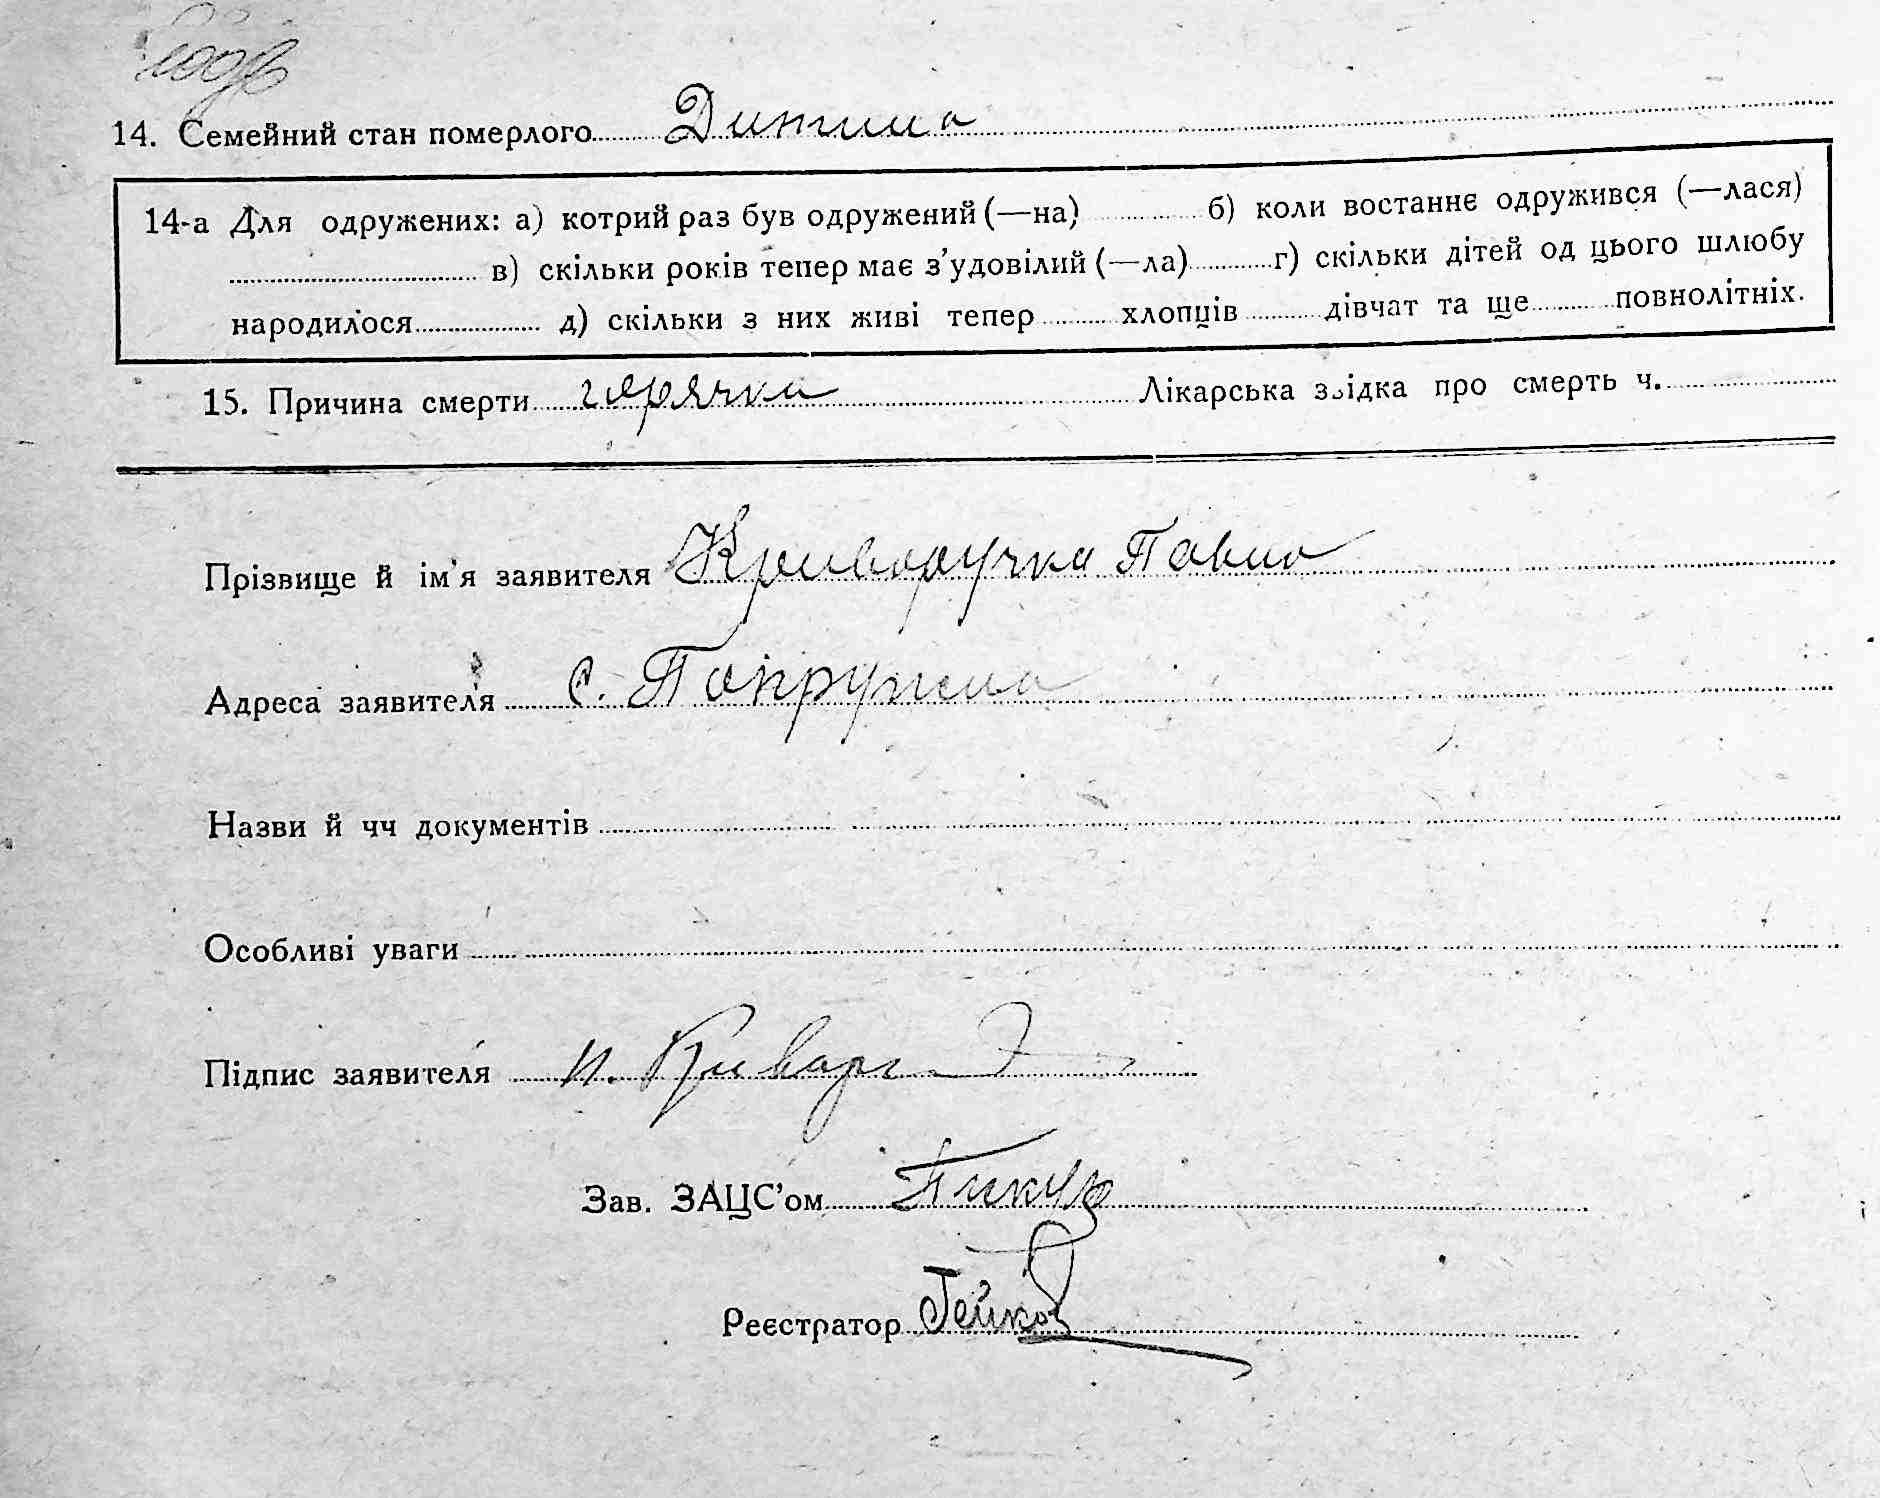 14. Семейний стан померлого Дитина
14-а Для одружених: а) котрий раз був одружений (—на) б) коли востаннє одружився (—лася)
в) скільки років тепер має з’удовілий (—ла) г) скільки дітей од цього шлюбу
народилося д) скільки з них живі тепер хлопців дівчат та ще повнолітніх.
15. Причина смерти горячка Лікарська звідка про смерть ч.
Прізвище й ім’я заявителя Криворучка Павло
Адреса заявителя с. Попружна
Назви й чч документів
Особливі уваги
Підпис заявителя
Зав. ЗАЦС’ом
Реєстратор